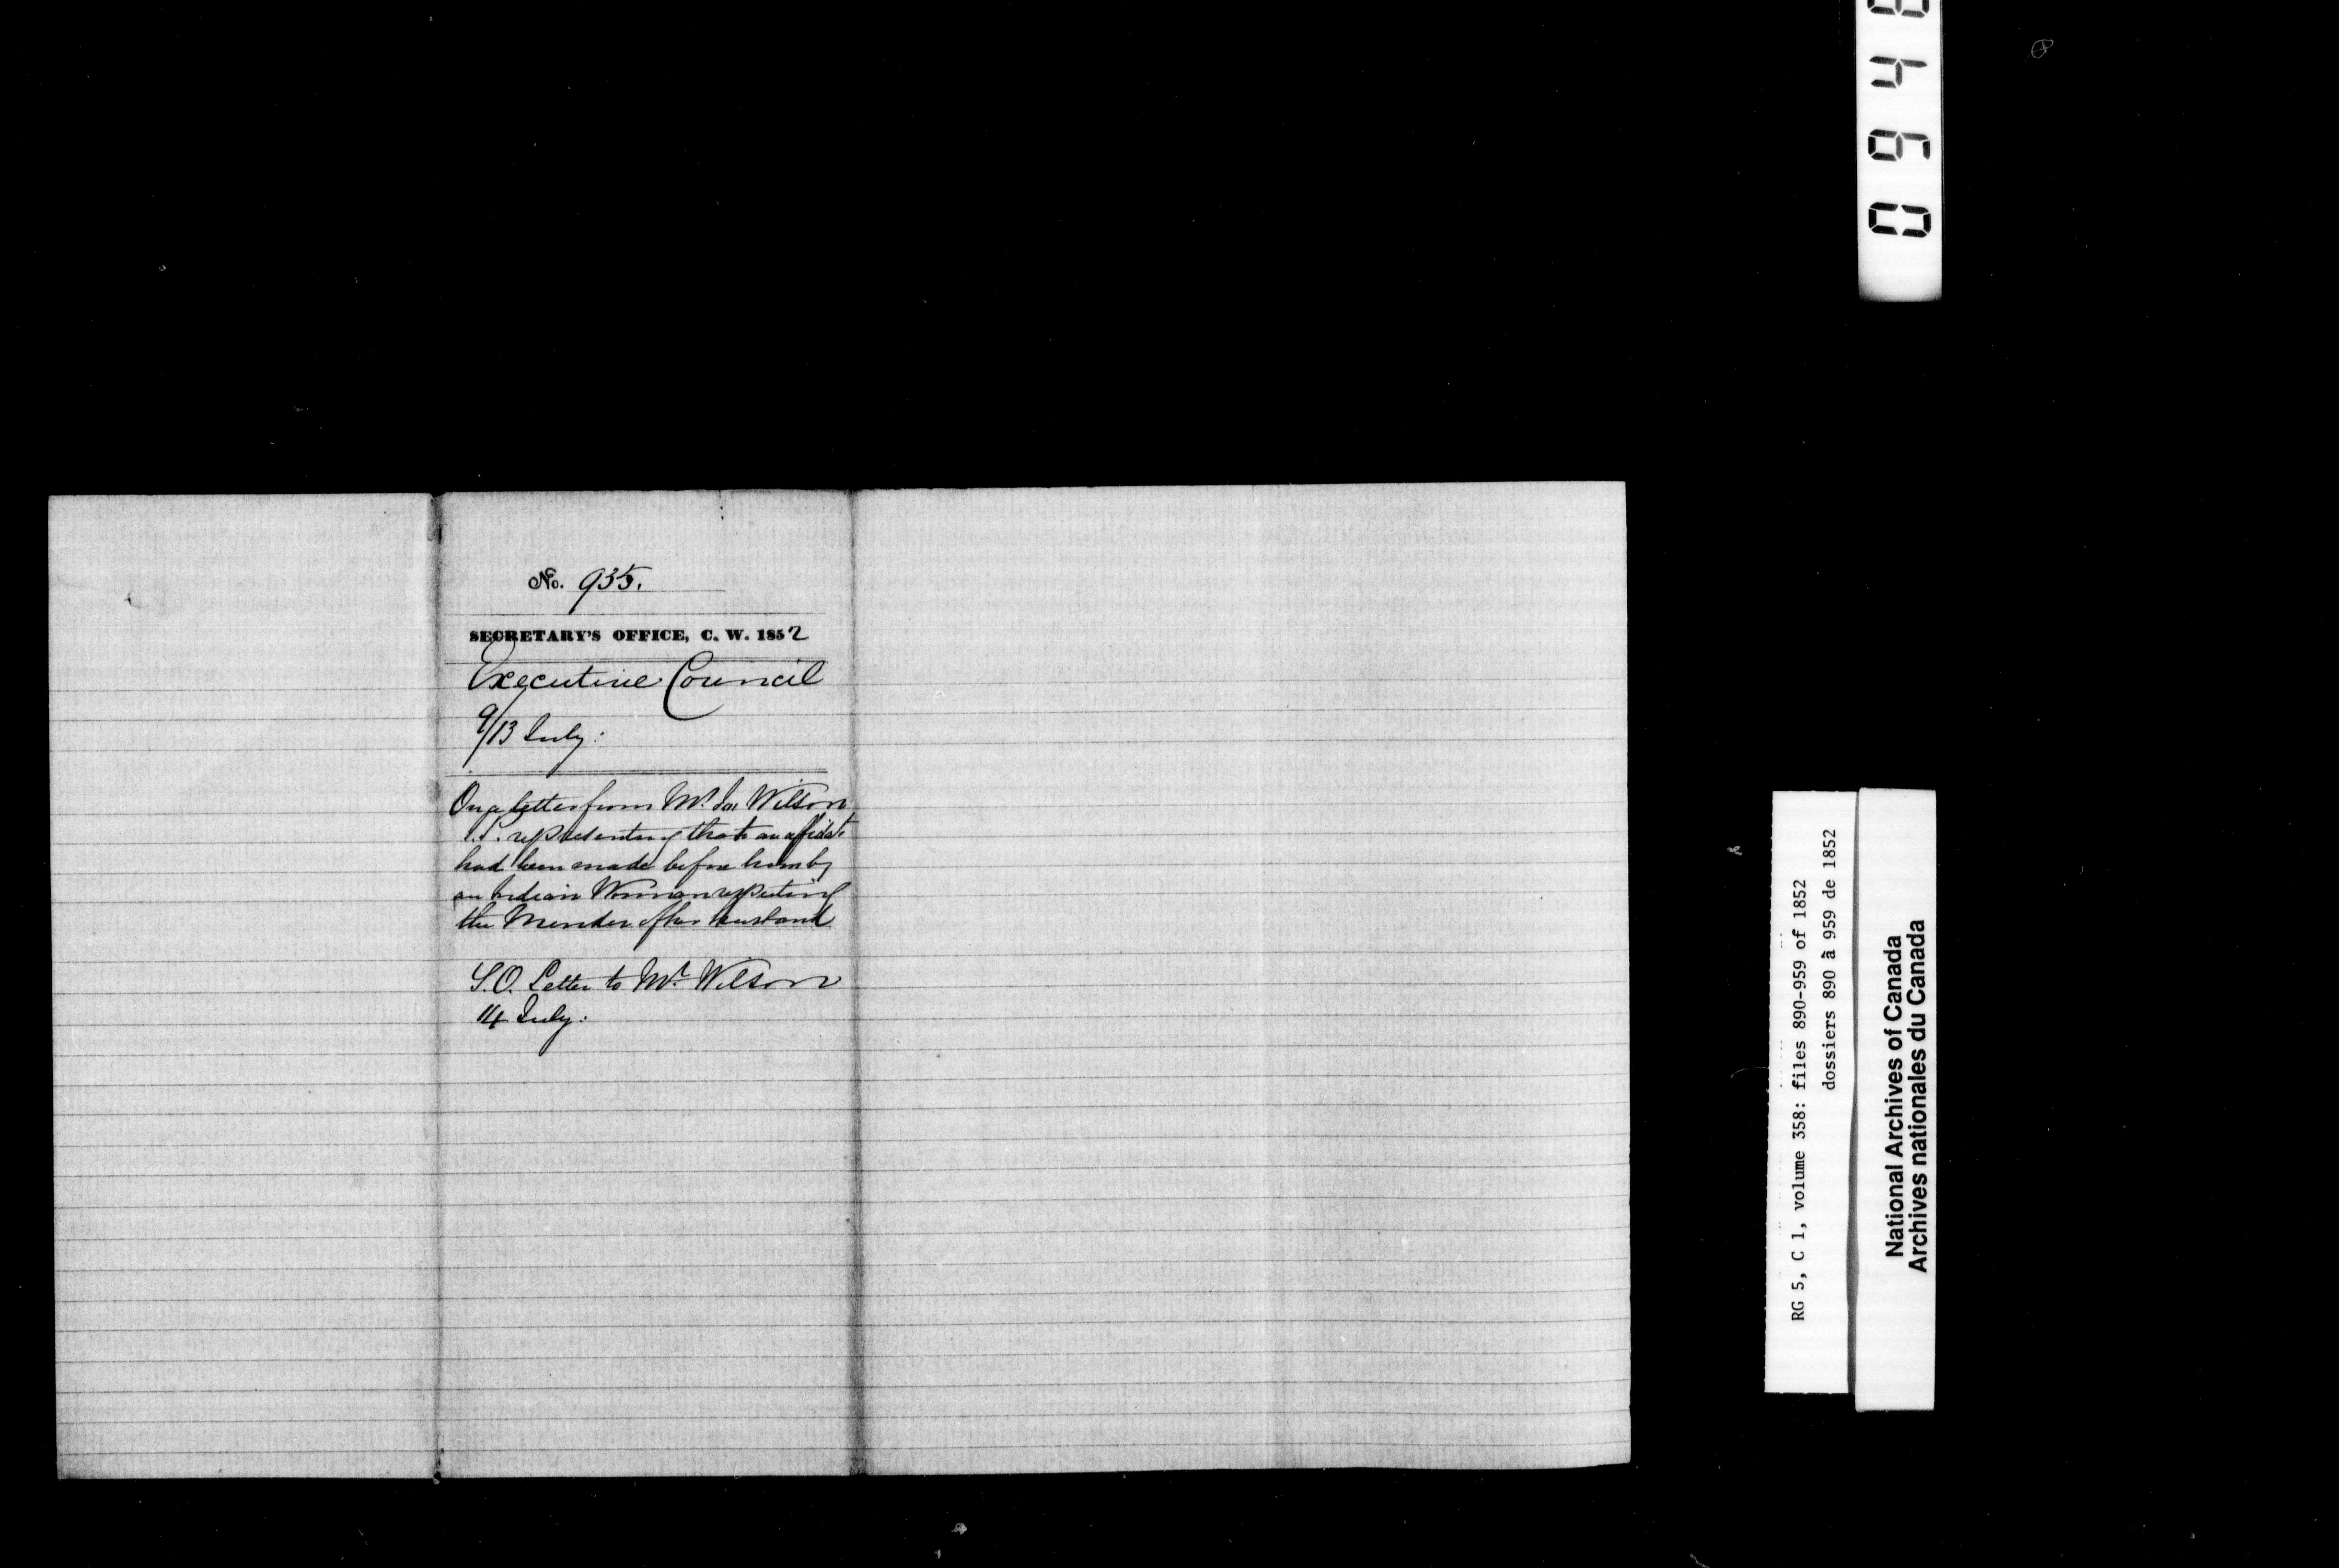 No. 935.
SECRETARY'S OFFICE, C. W. 1852
Executive Council
9/13 July.
On a letter from Mr. Jas Wilson
representing that an affidavt
had been made before him by
an Indian Woman respecting
the Murder of her husband
S.O. Letter to Mr. Wilson
14 July.
094
RG 5, C 1, volume 358: files 890-959 of 1852
dossiers 890 à 959 de 1852
National Archives of Canada
Archives nationales du Canada